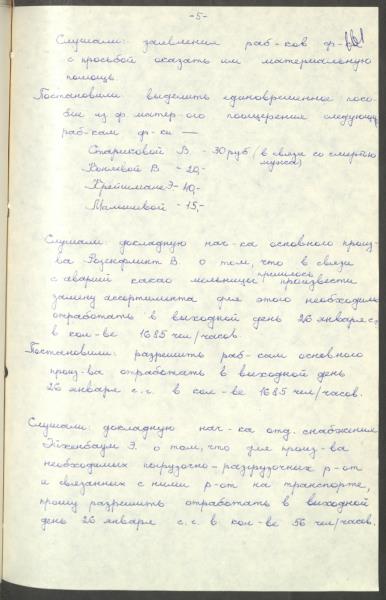 -5-
161
Слушали: заявления раб-ков ф-ки
с просьбой оказать им материальную
помощь.
Постановили: выделить единовременное посо-
бие из ф. матер-ого поощрения следующим
раб-кам ф-ки —
Стариковой В. - 30 руб (в связи со смертью
мужа)
Коневой В - 20,-
Крейшмане Э - 40,-
Малышевой - 15,-
Слушали: докладную нач-ка основного произ-
ва Розенфлинт В. о том, что в связи
с аварией какао мельницы пришлось произвести
замену ассортимента для этого необходимо
отработать в выходной день 26 января с.г.
в кол-ве 1685 чел/часов.
Постановили: разрешить раб-кам основного
произ-ва отработать в выходной день
26 января с.г. в кол-ве 1685 чел/часов.
Слушали: докладную нач-ка отд. снабжения
Эйхенбаум Э. о том, что для произ-ва
необходимых погрузочно-разгрузочных р-от
и связанных с ними р-от на транспорте,
прошу разрешить отработать в выходной
день 26 января с.г. в кол-ве 56 чел/часов.